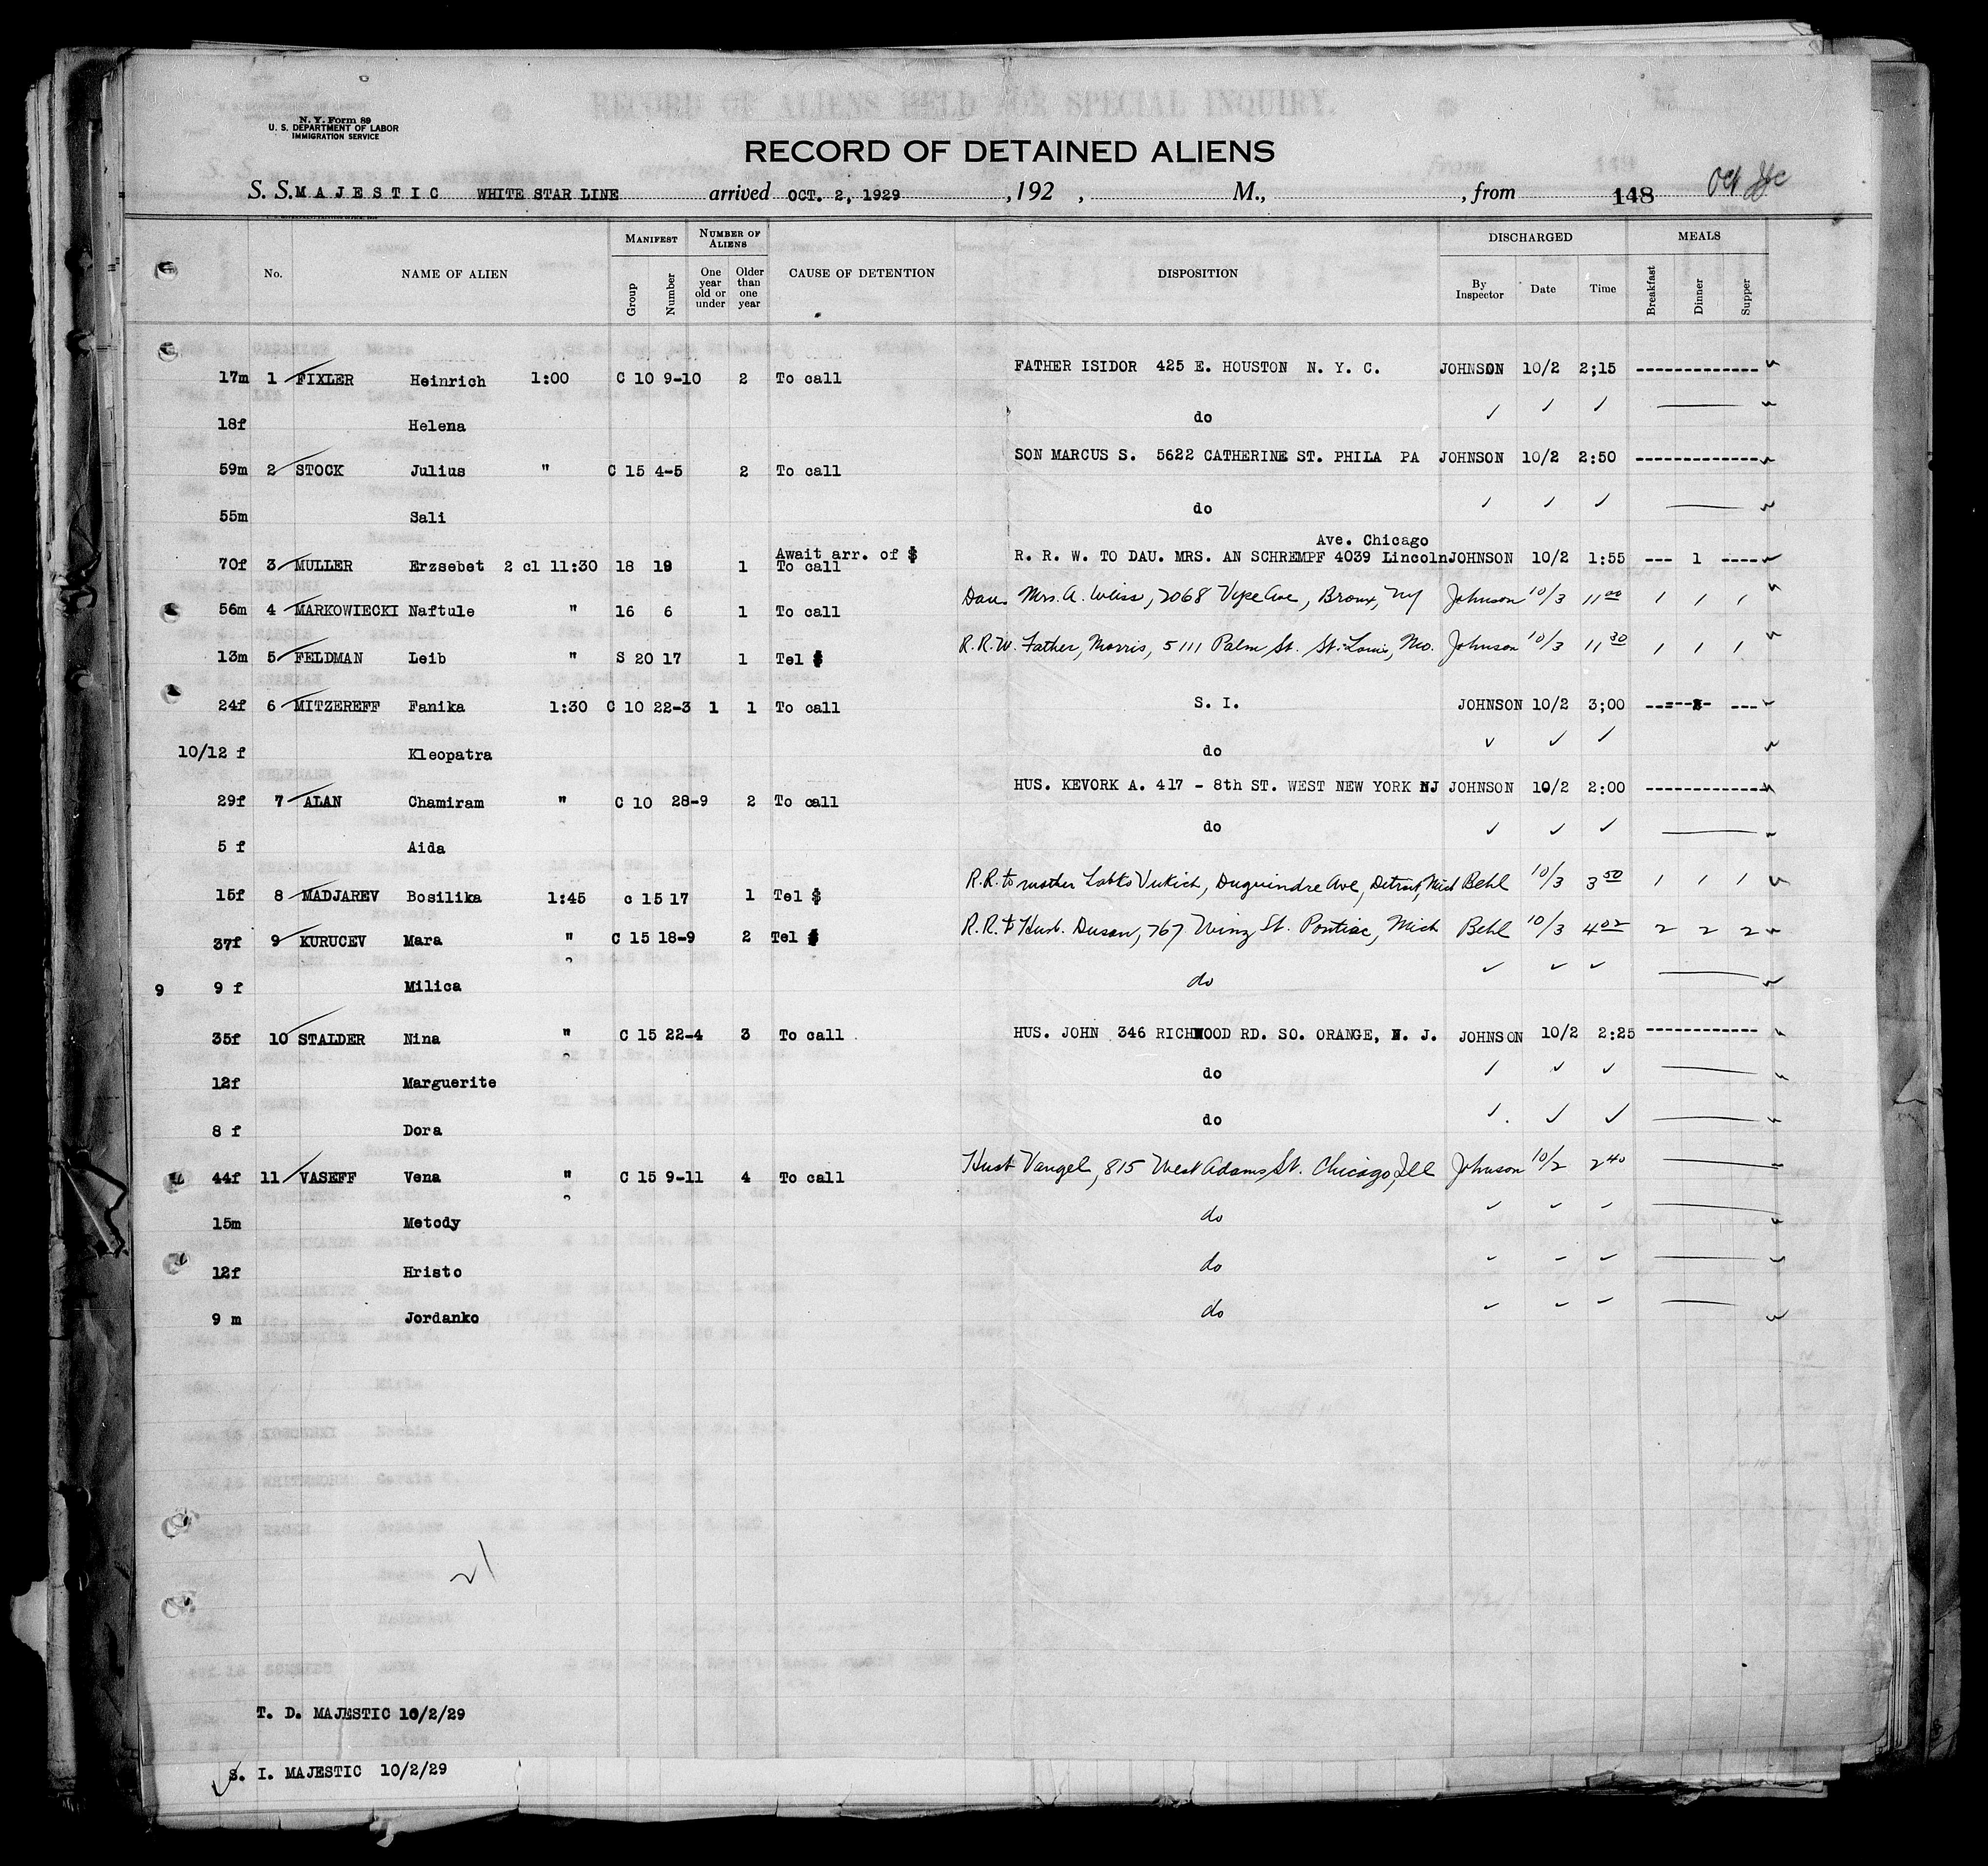 N. Y. Form 89
U. S. DEPARTMENT OF LABOR
IMMIGRATION SERVICE
RECORD OF ALIENS HELD FOR SPECIAL INQUIRY.
RECORD OF DETAINED ALIENS
S. S. MAJESTIC WHITE STAR LINE arrived OCT. 2, 1929 , 192 , M., , from 148
No. NAME OF ALIEN MANIFEST Group Number NUMBER OF ALIENS One year old or under Older than one year CAUSE OF DETENTION DISPOSITION DISCHARGED By Inspector Date Time MEALS Breakfast Dinner Supper
17m 1 FIXLER Heinrich 1:00 C 10 9-10 2 To call FATHER ISIDOR 425 E. HOUSTON N. Y. C. JOHNSON 10/2 2;15 -------------
18f Helena do ✓ ✓ ✓
59m 2 STOCK Julius " C 15 4-5 2 To call SON MARCUS S. 5622 CATHERINE ST. PHILA PA JOHNSON 10/2 2:50 -------------
55m Sali do ✓ ✓ ✓
Await arr. of $ Ave. Chicago
70f 3 MULLER Erzsebet 2 cl 11:30 18 19 1 To call R. R. W. TO DAU. MRS. AN SCHREMPF 4039 Lincoln JOHNSON 10/2 1:55 --- 1 ----
56m 4 MARKOWIECKI Naftule " 16 6 1 To call Dau. Mrs. A. Weiss, 2068 Vyse Ave, Bronx, NY Johnson 10/3 11 00 1 1 1
13m 5 FELDMAN Leib " S 20 17 1 Tel $ R.R.W. Father, Morris, 5111 Palm St. St. Louis, Mo. Johnson 10/3 11 30 1 1 1
24f 6 MITZEREFF Fanika 1:30 C 10 22-3 1 1 To call S. I. JOHNSON 10/2 3;00
10/12 f Kleopatra do ✓ ✓ ✓
29f 7 ALAN Chamiram " C 10 28-9 2 To call HUS. KEVORK A. 417 - 8th ST. WEST NEW YORK NJ JOHNSON 10/2 2:00 -------------
5 f Aida do ✓ ✓ ✓
15f 8 MADJAREV Bosilika 1:45 c 15 17 1 Tel $ R.R. to mother Vukich, Duquindre Ave, Detroit, Mich Behl 10/3 3 50 1 1 1
37f 9 KURUCEV Mara " C 15 18-9 2 Tel $ R.R. to Husb. Dusan, 767 St. Pontiac, Mich Behl 10/3 4 02 2 2 2
9 9 f Milica do ✓ ✓ ✓
35f 10 STALDER Nina " C 15 22-4 3 To call HUS. JOHN 346 RICHWOOD RD. SO. ORANGE, N. J. JOHNSON 10/2 2:25 ------------
12f Marguerite do ✓ ✓ ✓
8 f Dora do ✓ ✓ ✓
44f 11 VASEFF Vena " C 15 9-11 4 To call Husb Vangel, 815 West Adams St. Chicago, Ill Johnson 10/2 2 40
15m Metody do ✓ ✓ ✓
12f Hristo do ✓ ✓ ✓
9 m Jordanko do ✓ ✓ ✓
21
T. D. MAJESTIC 10/2/29
S. I. MAJESTIC 10/2/29